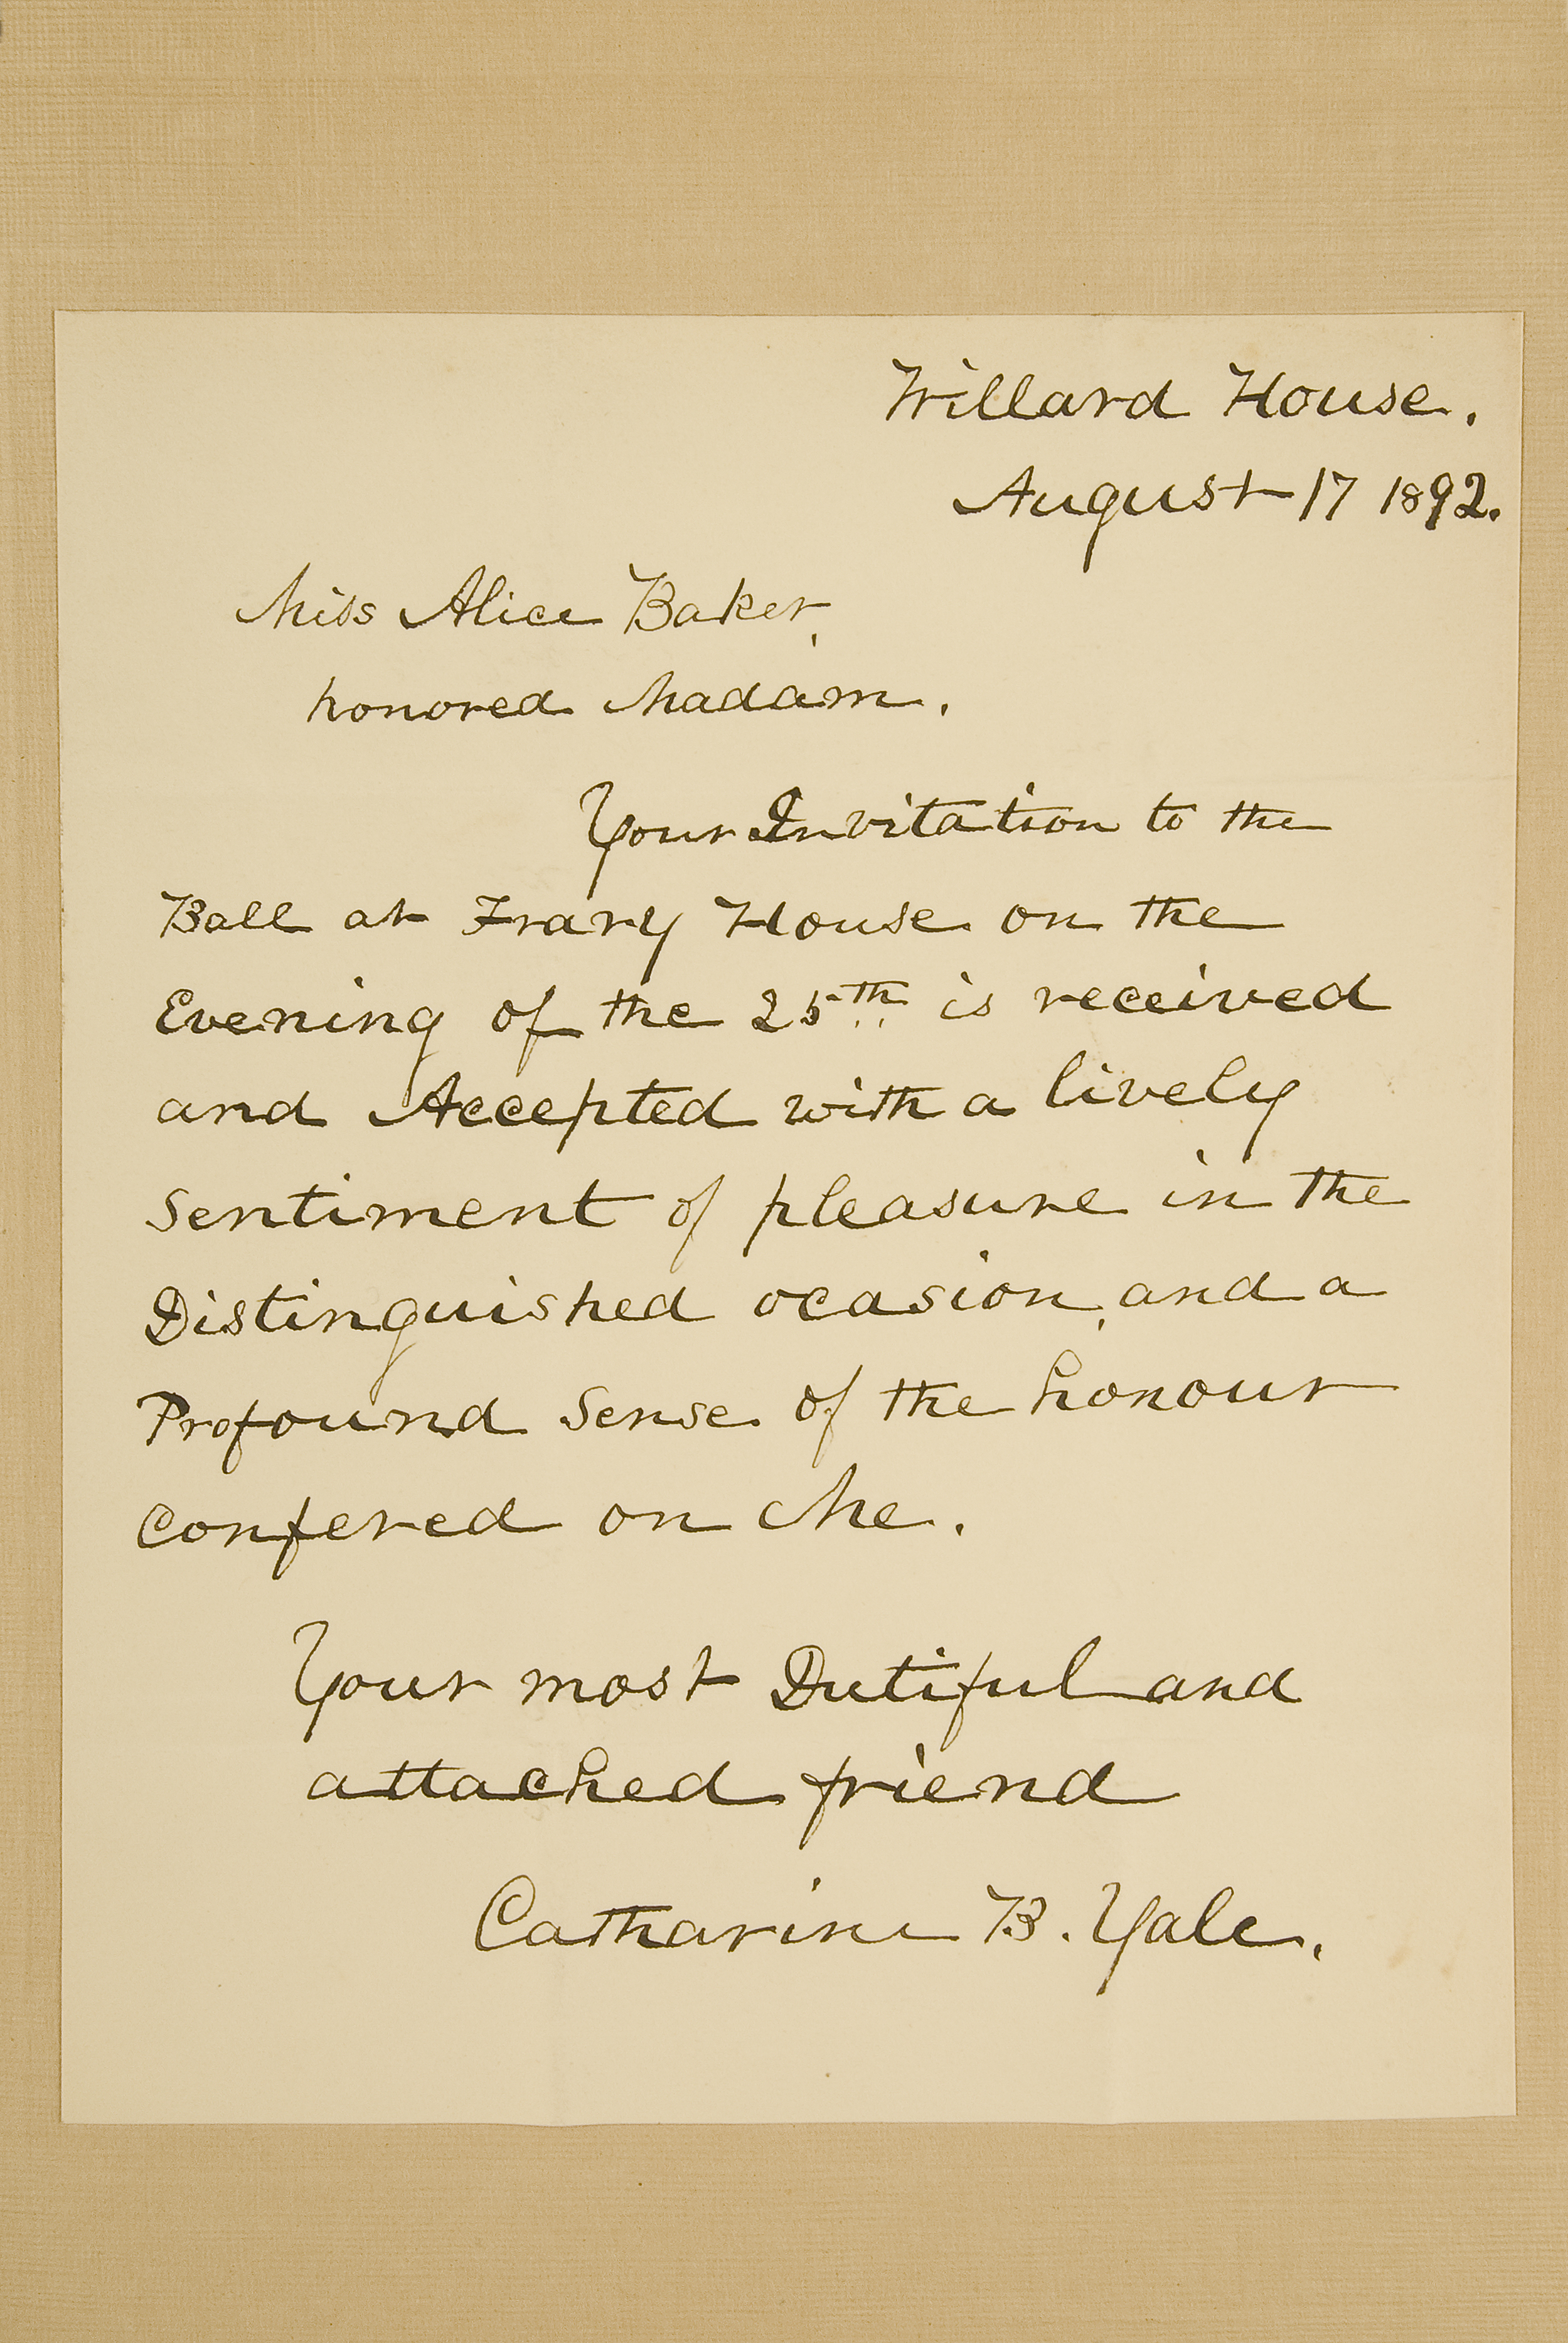 Willard House.
August 17 1892.
Miss Alice Baker,
honored Madam.
Your Invitation to the
Ball at Frary House on the
Evening of the 25th is received
and Accepted with a lively
Sentiment of pleasure in the
Distinguished ocasion, and a
Profound Sense of the honour
confered on Me.
Your most Dutiful and
attached friend
Catharine B. Yale.